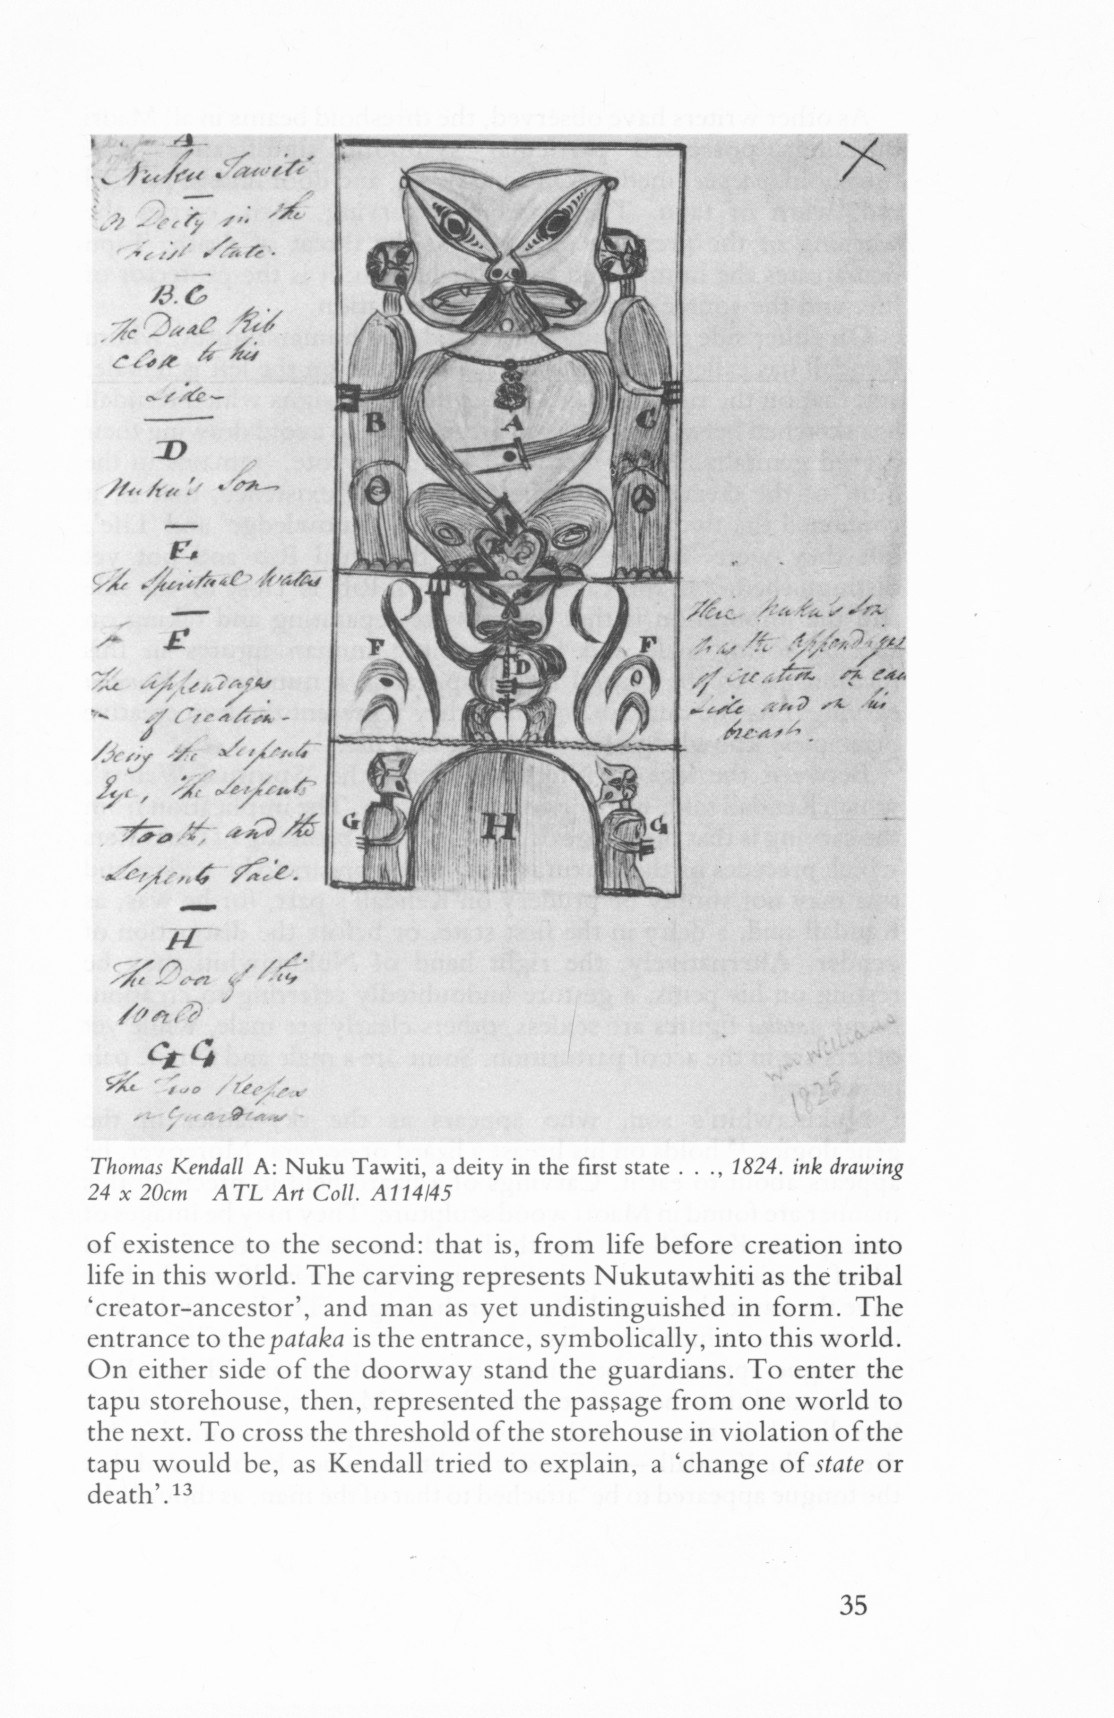 A
Nuku Tawiti
or Deity in the
First State.
B.C
The Dual Rib
close to his
Side
D
Nuku's Son
E.
The Spiritual Waters
F
The appendages
of Creation -
Being the Serpents
Eye, The Serpents
tooth, and the
Serpents Tail.
H
The Door of this
World
G G
The Two Keepers
or Guardians
X
A
B
C
E
D
F
F
G
G
H
Here Nuku's Son
has the appendages
of Creation on each
Side and on his
breast.
Wm Williams
1825
Thomas Kendall A: Nuku Tawiti, a deity in the first state . . ., 1824. ink drawing
24 x 20cm ATL Art Coll. A114/45
of existence to the second: that is, from life before creation into
life in this world. The carving represents Nukutawhiti as the tribal
‘creator-ancestor’, and man as yet undistinguished in form. The
entrance to the pataka is the entrance, symbolically, into this world.
On either side of the doorway stand the guardians. To enter the
tapu storehouse, then, represented the passage from one world to
the next. To cross the threshold of the storehouse in violation of the
tapu would be, as Kendall tried to explain, a ‘change of state or
death’.13
35